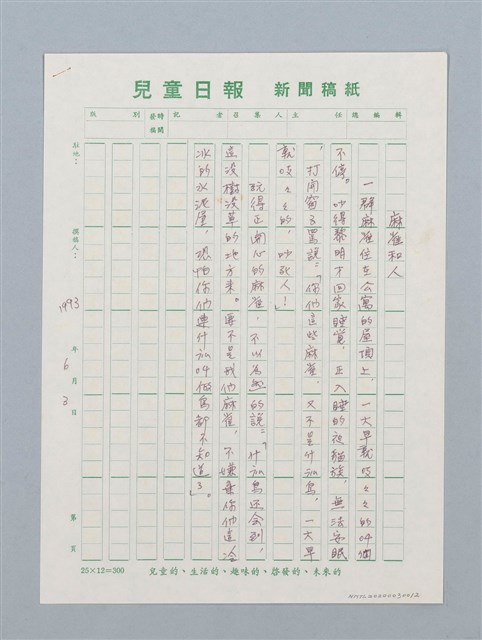 兒童日報 新聞稿紙
版 別 發稿時間 記者 召集人 主任 總編輯
駐地：
撰稿人：
1993年6月3日
第 頁
麻雀和人
一群麻雀住在公寓的屋頂上，一大早就吱々々的叫個
不停。吵得黎明才回家睡覺，正入睡的夜貓族，無法安眠
，打開窗子罵說：「你們這些麻雀，又不是什麼鳥，一大早
就吱々々的，吵死人！」
玩得正開心的麻雀，不以為然的說：「什麼鳥还会到
這沒樹沒草的地方來。要不是我們麻雀，不嫌棄你們這冷
冰的水泥屋，恐怕你們連什麼叫做鳥都不知道了」。
25×12=300 兒童的、生活的、趣味的、啓發的、未來的